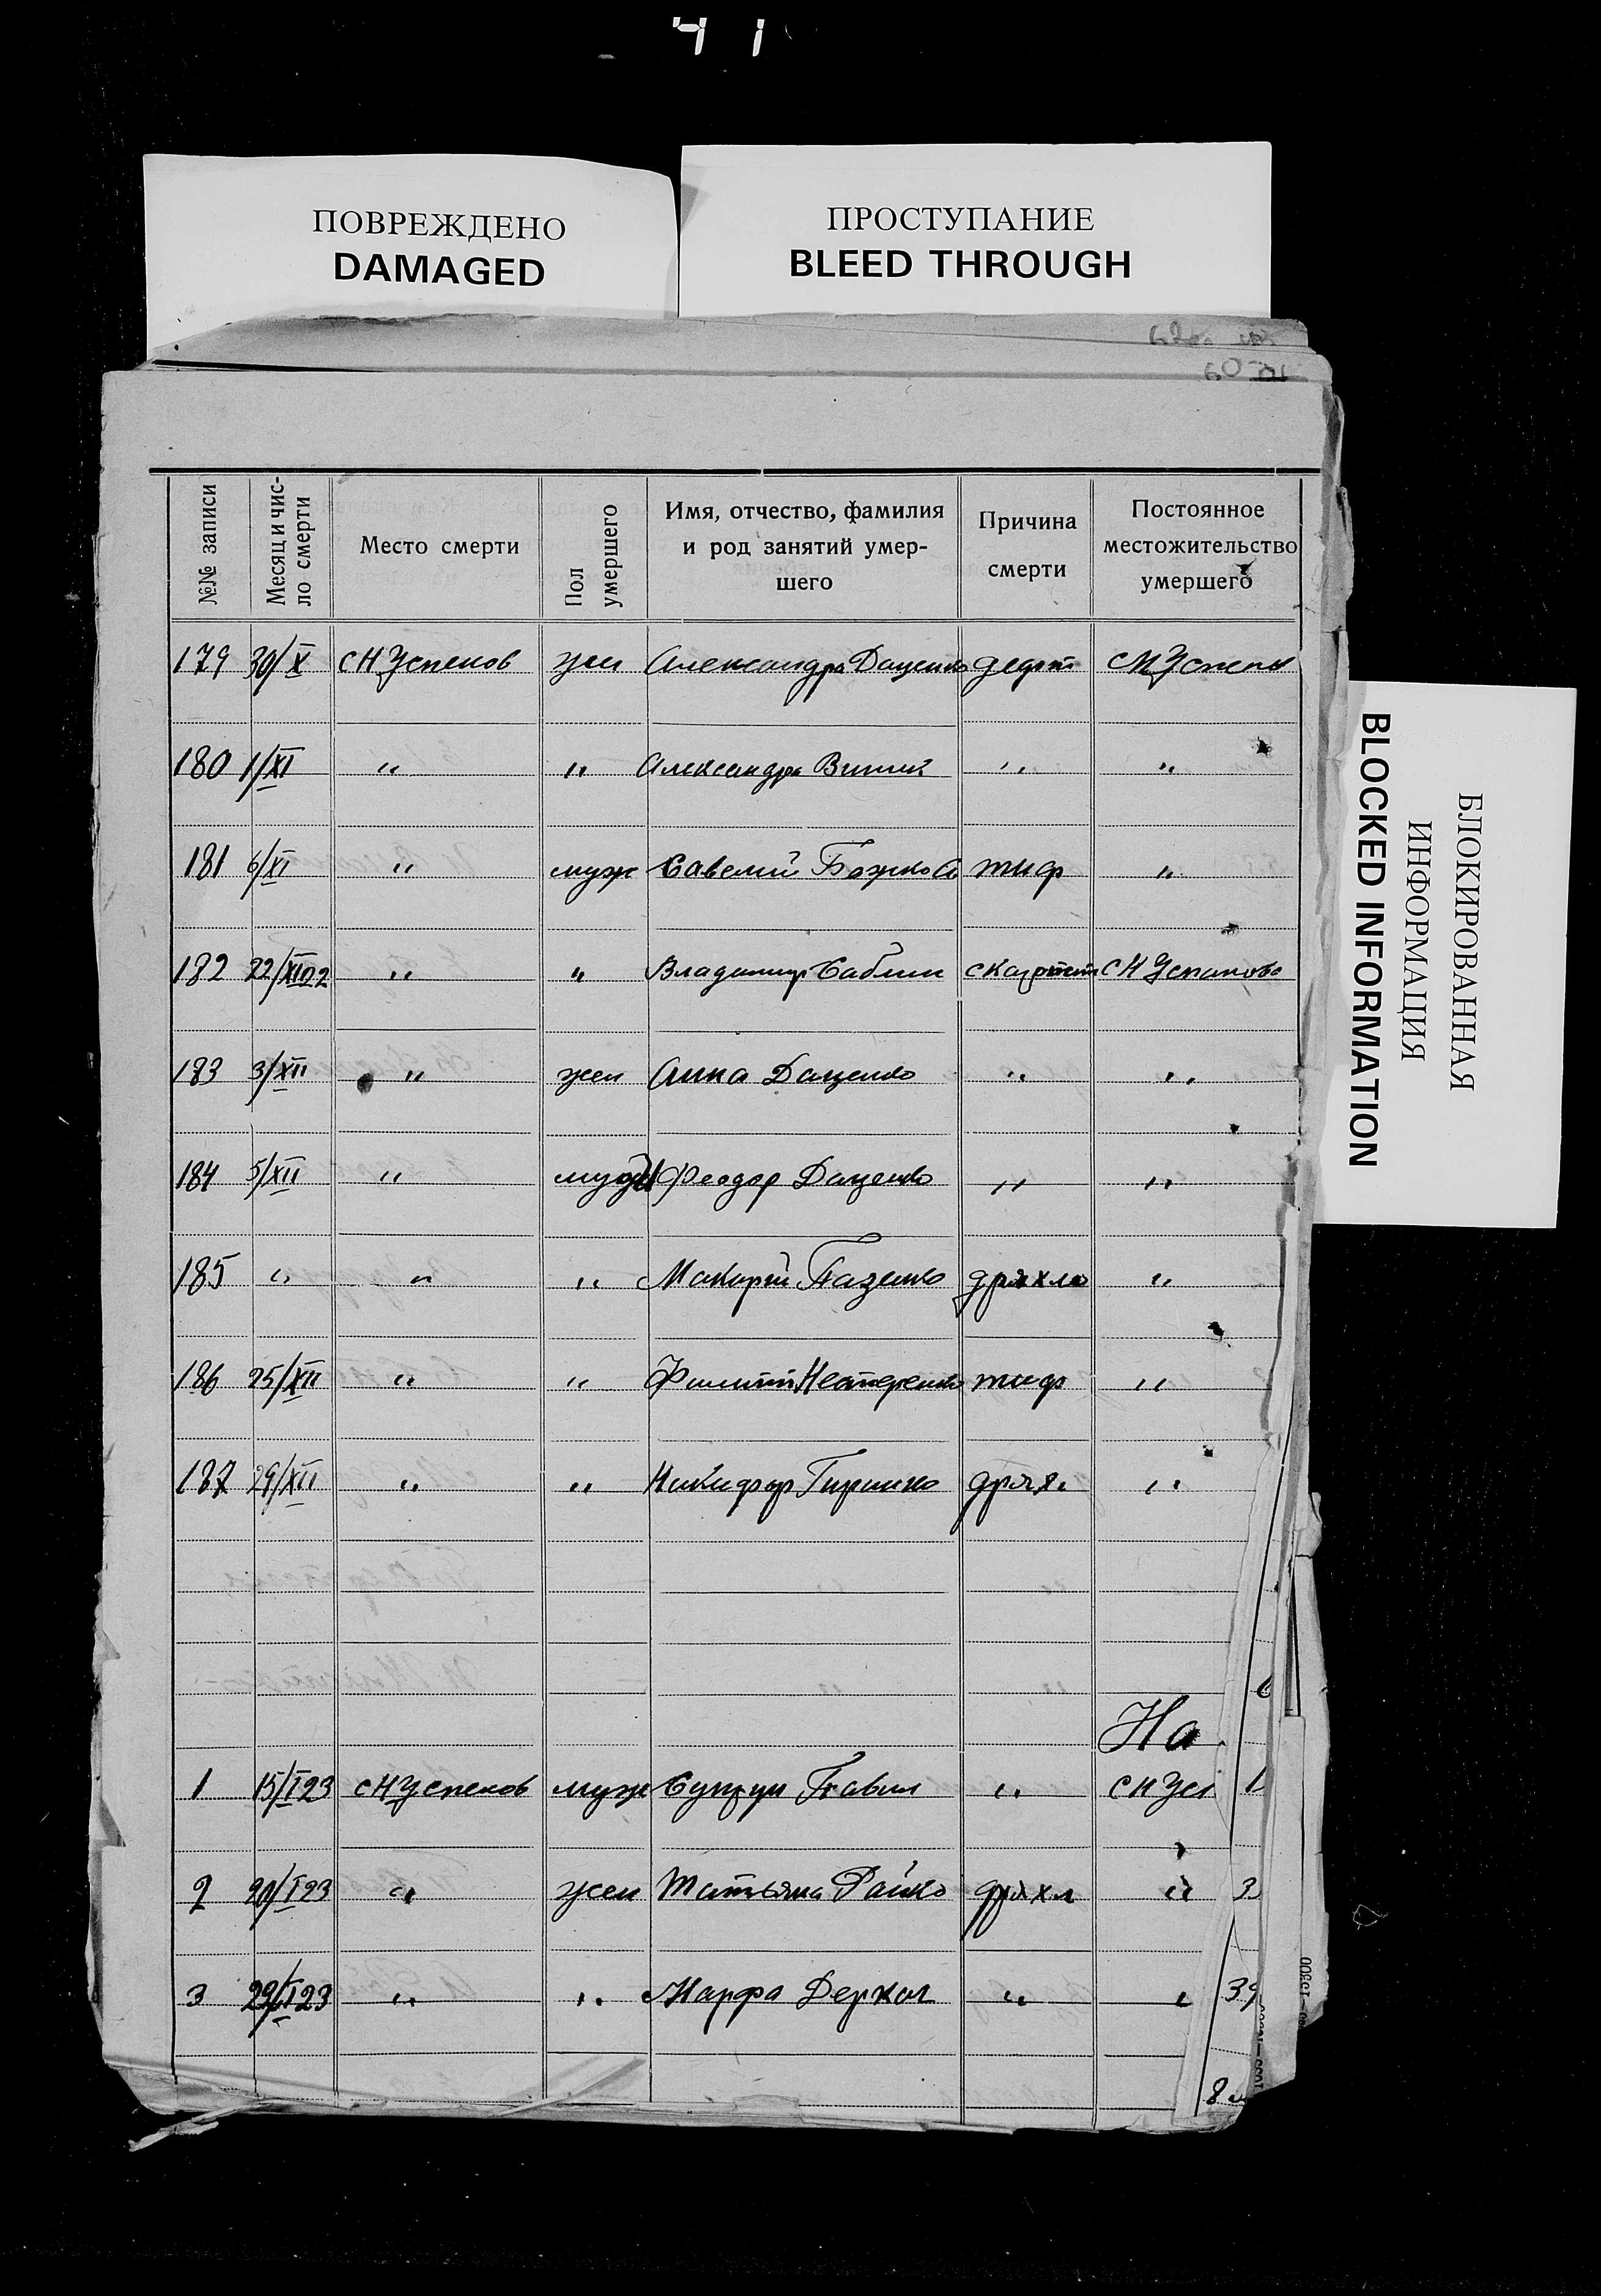 41
ПОВРЕЖДЕНО
DAMAGED
ПРОСТУПАНИЕ
BLEED THROUGH
БЛОКИРОВАННАЯ
ИНФОРМАЦИЯ
BLOCKED INFORMATION
№№ записи
Месяц и чис-
ло смерти
Место смерти
Пол
умершего
Имя, отчество, фамилия
и род занятий умер-
шего
Причина
смерти
Постоянное
местожительство
умершего
179 30/X СН Успенов жен Александра Даценко СН Успен
180 1/XI " " Александра " "
181 6/XI " муж Савелий Божко тиф "
182 22/XI " " Владимир Бабин СН Успеново
183 3/XII " жен Анна Даценко " "
184 5/XII " муж Феодор Даценко " "
185 " " " Макарий дряхло "
186 25/XII " " Филипп Нестеренко тиф "
187 29/XII " " Никифор дрях. "
На
1 15/I 23 СН Успенов муж Супрун Павел " СН Усп 1
2 20/I 23 " жен Татьяна дряхл " 3
3 29/I 23 " " Марфа Деркач " " 39
8